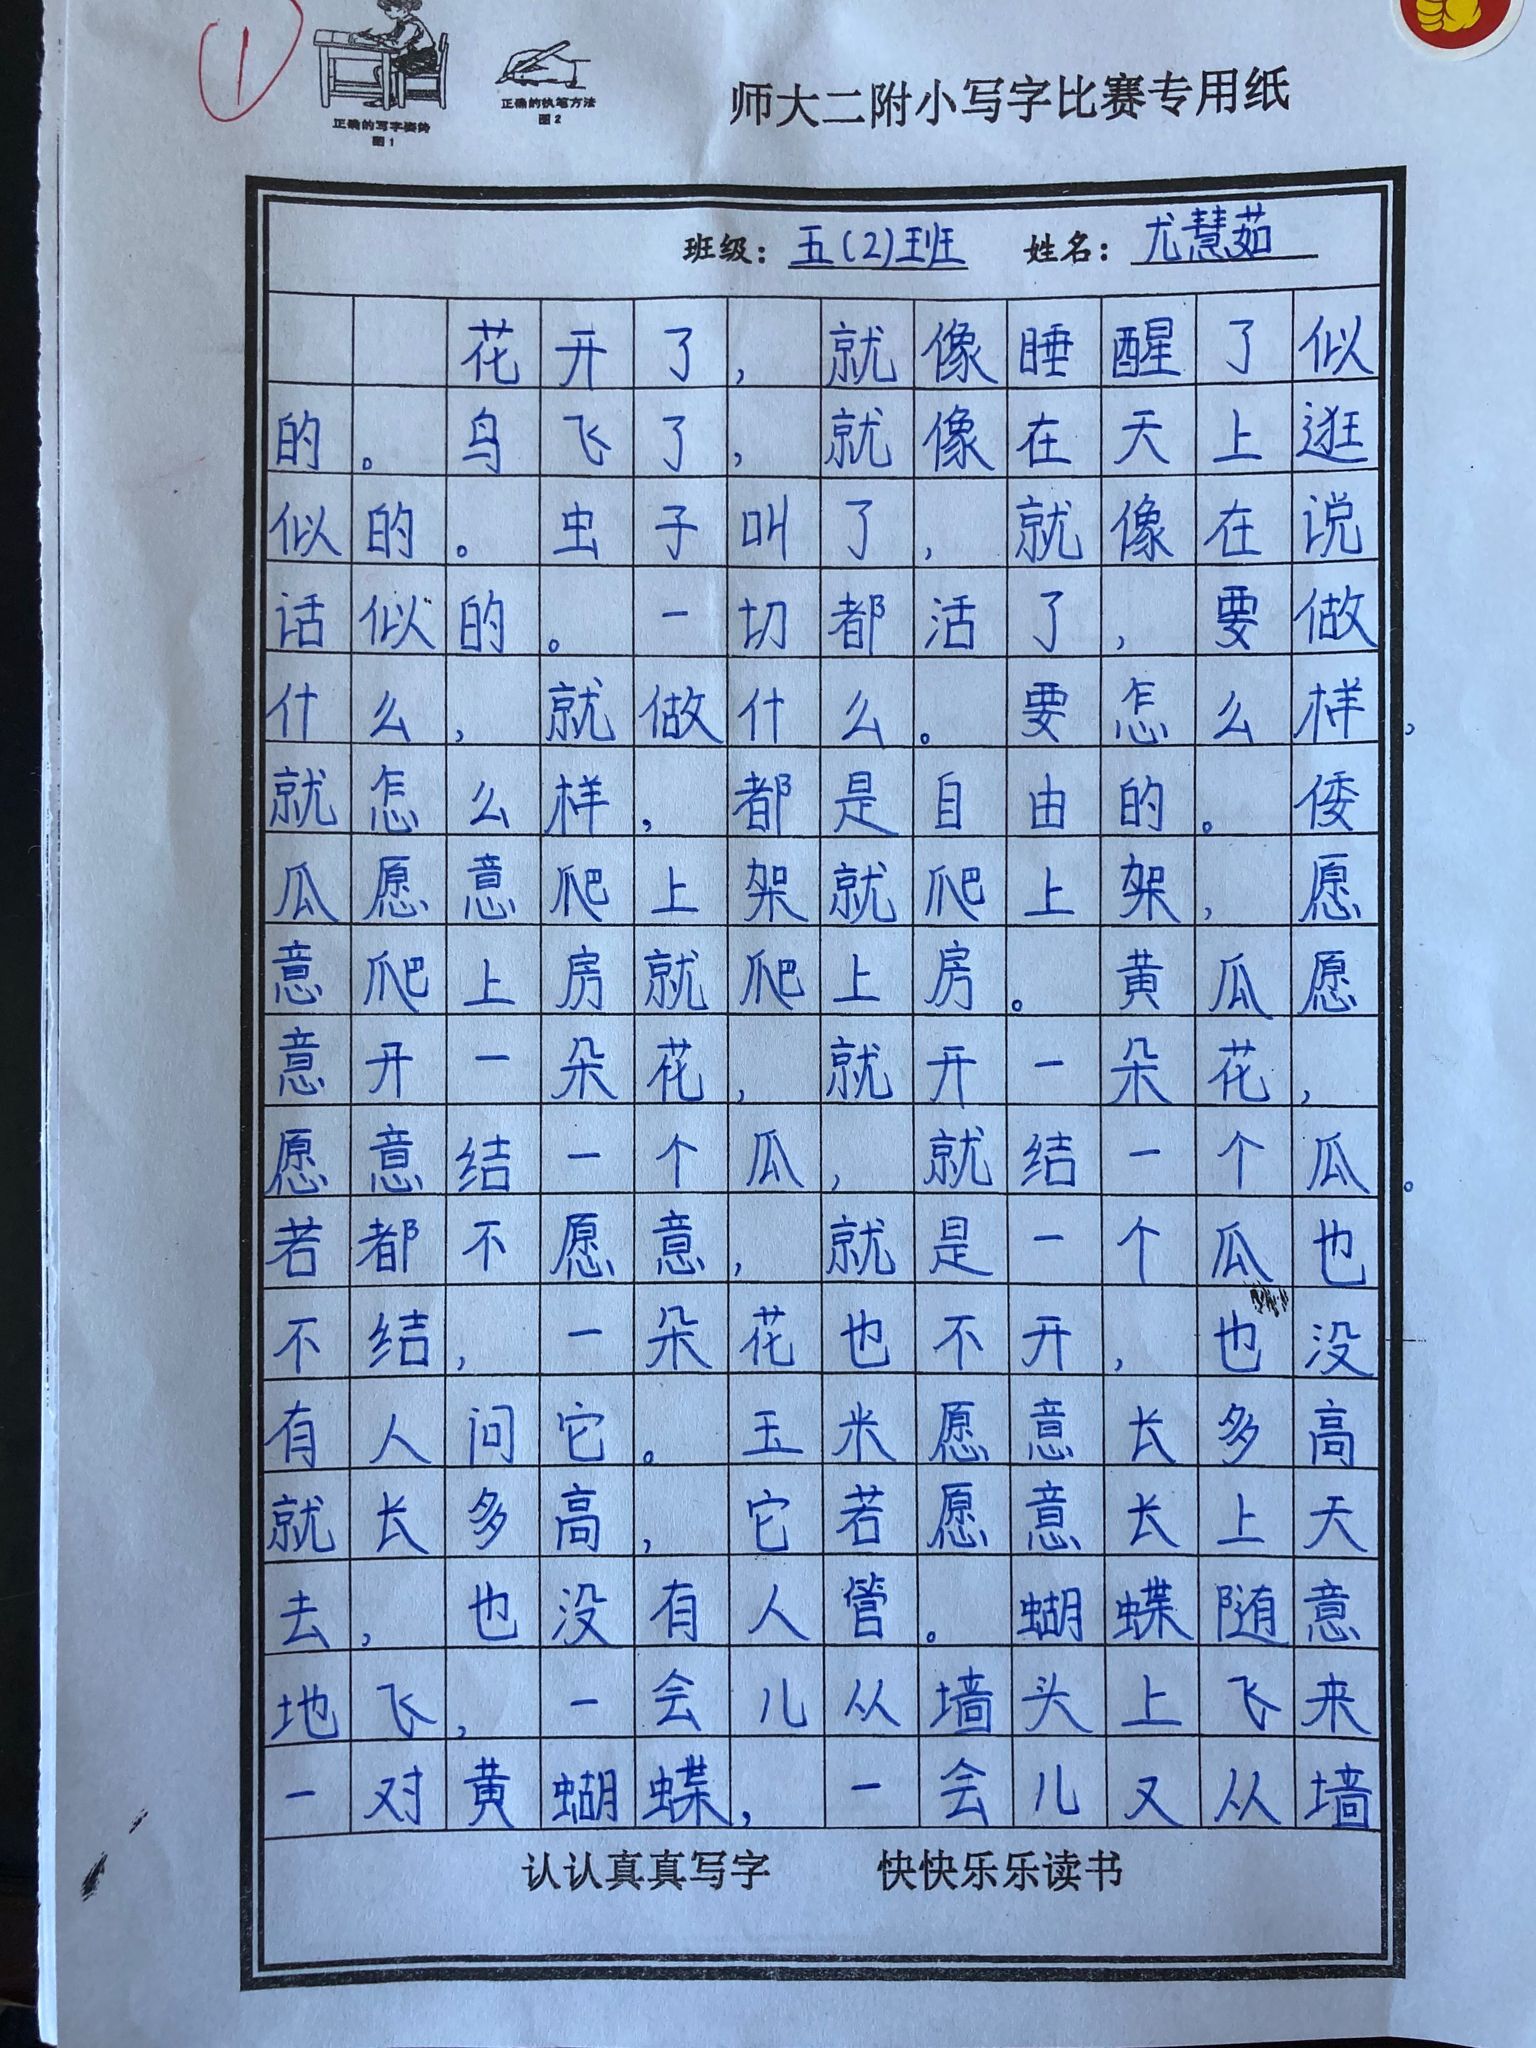 1
正确的写字姿势
图1
正确的执笔方法
图2
师大二附小写字比赛专用纸
班级：五(2)班 姓名：尤慧茹
花开了，就像睡醒了似
的。鸟飞了，就像在天上逛
似的。虫子叫了，就像在说
话似的。一切都活了，要做
什么，就做什么。要怎么样，
就怎么样，都是自由的。倭
瓜愿意爬上架就爬上架，愿
意爬上房就爬上房。黄瓜愿
意开一朵花，就开一朵花，
愿意结一个瓜，就结一个瓜。
若都不愿意，就是一个瓜也
不结，一朵花也不开，也没
有人问它。玉米愿意长多高
就长多高，它若愿意长上天
去，也没有人管。蝴蝶随意
地飞，一会儿从墙头上飞来
一对黄蝴蝶，一会儿又从墙
认认真真写字 快快乐乐读书